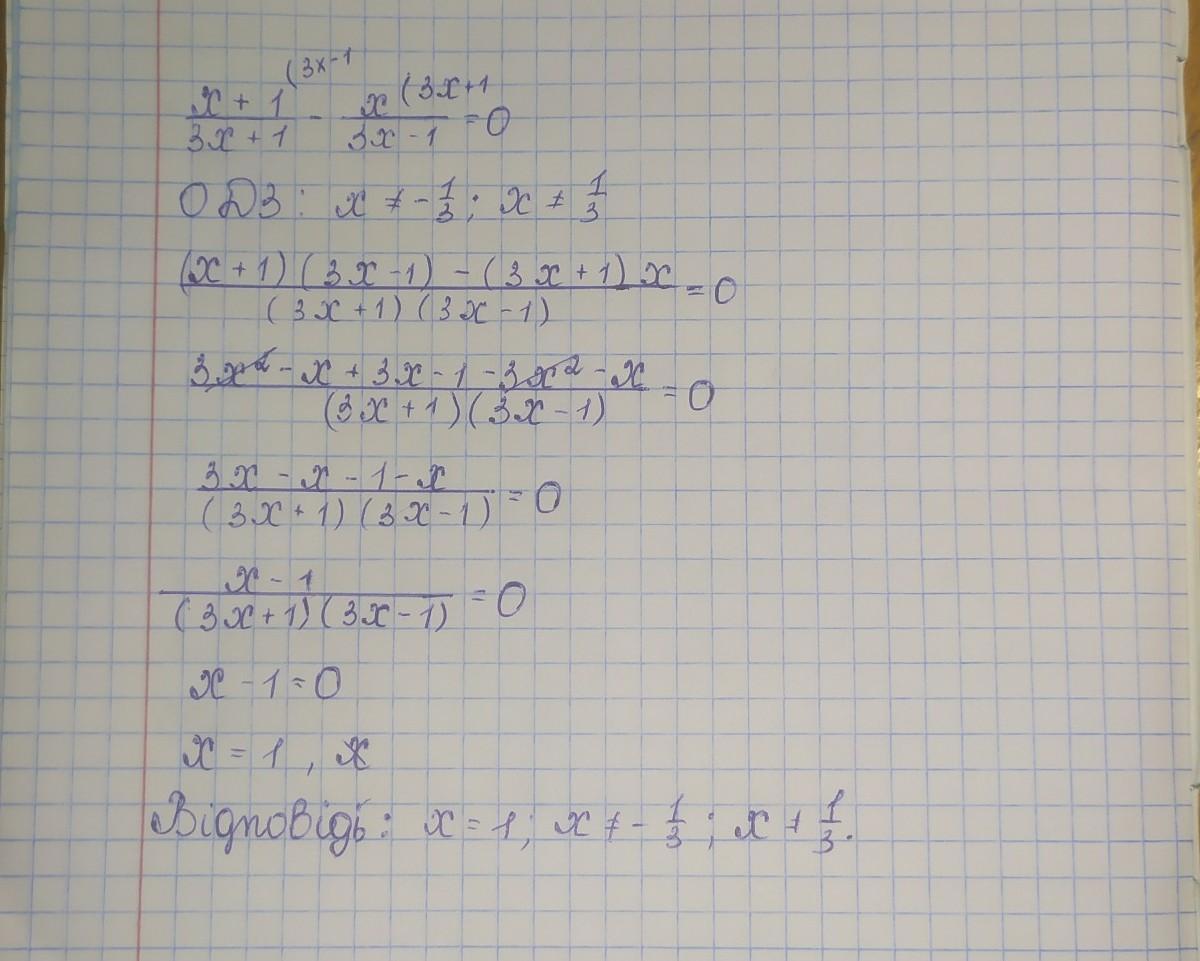 (x + 1)/(3x + 1) (3x-1 - x/(3x - 1) (3x+1 = 0
ОДЗ: x ≠ - 1/3; x ≠ 1/3
((x + 1)(3x - 1) - (3x + 1)x)/((3x + 1)(3x - 1)) = 0
(3x² - x + 3x - 1 - 3x² - x)/((3x + 1)(3x - 1)) = 0
(3x - x - 1 - x)/((3x + 1)(3x - 1)) = 0
(x - 1)/((3x + 1)(3x - 1)) = 0
x - 1 = 0
x = 1,
Відповідь: x = 1; x ≠ - 1/3; x ≠ 1/3.